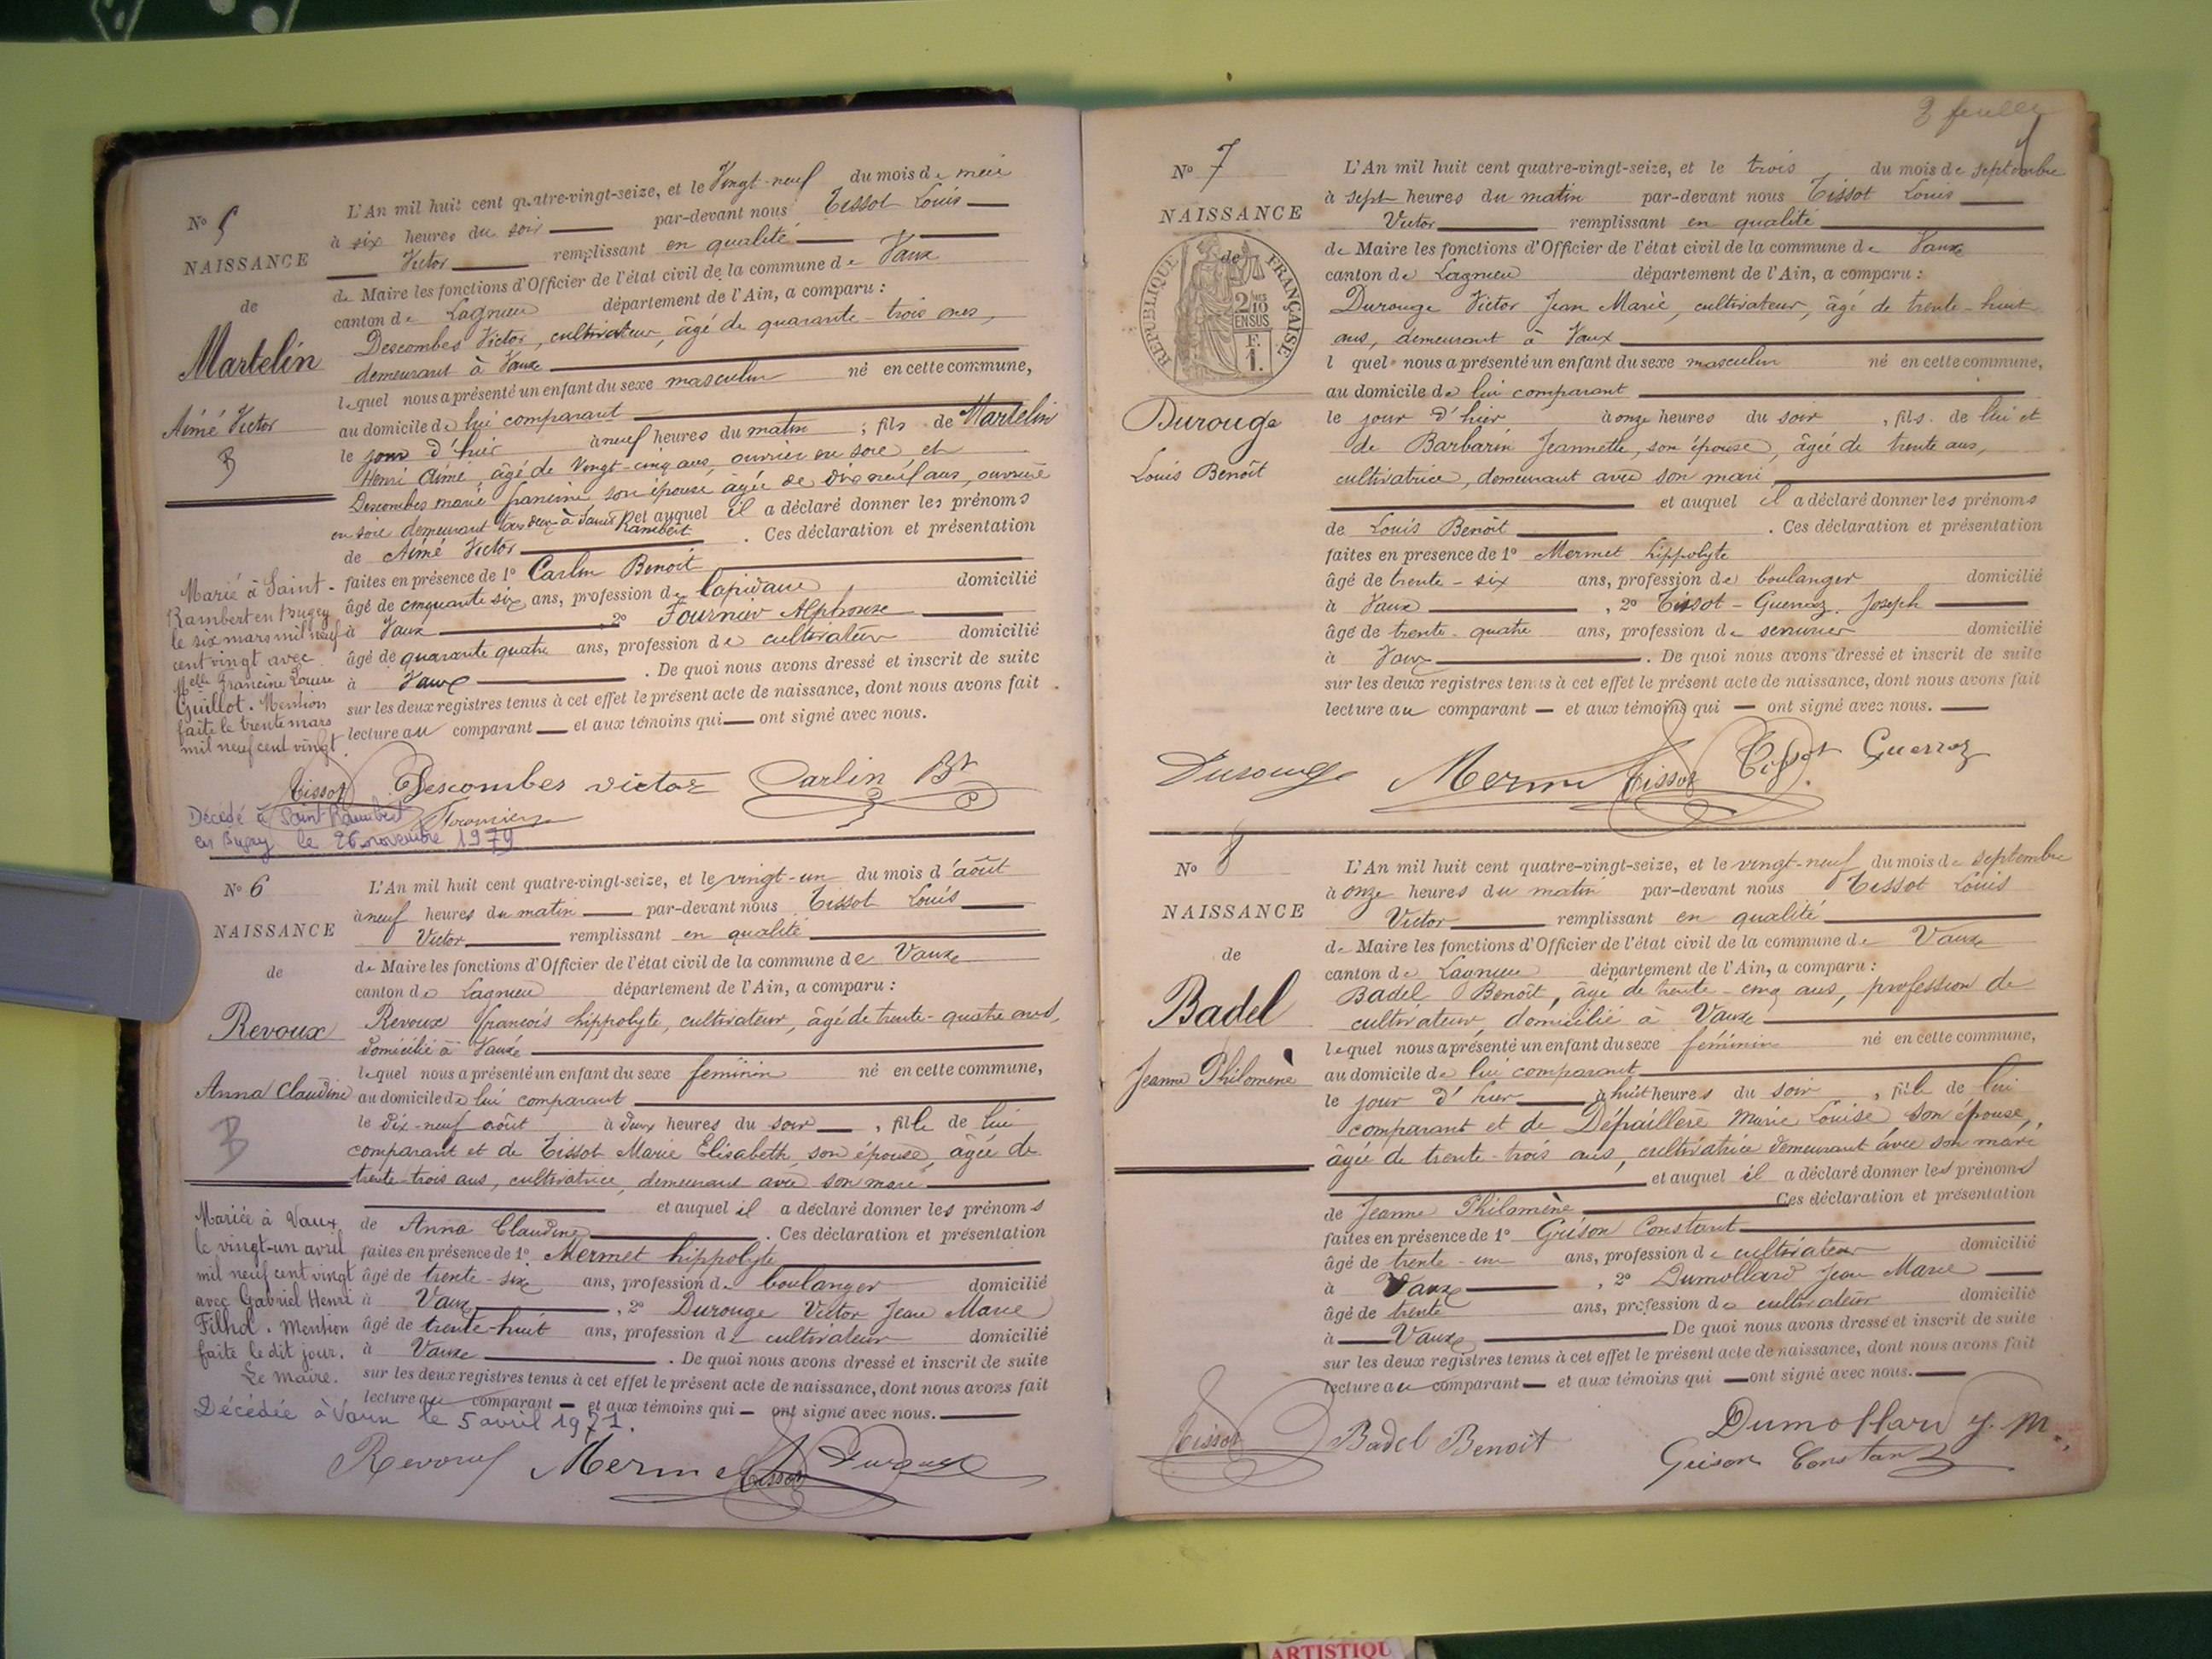 No 5
NAISSANCE
de
Martelin
Aimé Victor
B
L'An mil huit cent quatre-vingt-seize, et le Vingt-neuf du mois de mai
à six heures du soir par-devant nous Tissot Louis
Victor remplissant en qualité
de Maire les fonctions d'Officier de l'état civil de la commune de Vaux
canton de Lagnieu département de l'Ain, a comparu :
Descombes Victor, cultivateur, âgé de quarante-trois ans,
demeurant à Vaux
lequel nous a présenté un enfant du sexe masculin né en cette commune,
au domicile de lui comparant
le jour d'hier à neuf heures du matin ; fils de Martelin
Henri Aimé, âgé de Vingt-cinq ans, ouvrier en soie et
Descombes marie francine son épouse agée de dix neuf ans, ouvrière
en soie demeurant tous deux à Saint Rambert et auquel il a déclaré donner les prénoms
de Aimé Victor . Ces déclaration et présentation
faites en présence de 1° Carlin Benoit
âgé de cinquante six ans, profession de lapidaire domicilié
à Vaux , 2° Fournier Alphonse
âgé de quarante quatre ans, profession de cultivateur domicilié
à Vaux . De quoi nous avons dressé et inscrit de suite
sur les deux registres tenus à cet effet le présent acte de naissance, dont nous avons fait
lecture au comparant et aux témoins qui ont signé avec nous.
Marié à Saint-
Rambert en Bugey
le six mars mil neuf
cent vingt avec
Melle Francine Louise
Guillot. Mention
faite le trente mars
mil neuf cent vingt.
Tissot Descombes victor Carlin Bt
Fournier
Décédé à Saint Rambert
en Bugey le 26 novembre 1979
No 6
NAISSANCE
de
Revoux
Anna Claudine
B
L'An mil huit cent quatre-vingt-seize, et le vingt-un du mois d'août
à neuf heures du matin par-devant nous Tissot Louis
Victor remplissant en qualité
de Maire les fonctions d'Officier de l'état civil de la commune de Vaux
canton de Lagnieu département de l'Ain, a comparu :
Revoux françois hippolyte, cultivateur, âgé de trente-quatre ans,
domicilié à Vaux
lequel nous a présenté un enfant du sexe féminin né en cette commune,
au domicile de lui comparant
le Dix-neuf août à deux heures du soir , fille de lui
comparant et de Tissot Marie Elisabeth, son épouse, âgée de
trente-trois ans, cultivatrice, demeurant avec son mari
et auquel il a déclaré donner les prénoms
de Anna Claudine . Ces déclaration et présentation
faites en présence de 1° Mermet hippolyte
âgé de trente-six ans, profession de boulanger domicilié
à Vaux , 2° Durouge Victor Jean Marie
âgé de trente-huit ans, profession de cultivateur domicilié
à Vaux . De quoi nous avons dressé et inscrit de suite
sur les deux registres tenus à cet effet le présent acte de naissance, dont nous avons fait
lecture au comparant et aux témoins qui ont signé avec nous.
Mariée à Vaux
le vingt-un avril
mil neuf cent vingt
avec Gabriel Henri
Filhol. Mention
faite le dit jour.
Le Maire.
Décédée à Vaux le 5 avril 1971.
Revoux Mermet Tissot Durouge
2 feuille
No 7
NAISSANCE
de
RÉPUBLIQUE FRANÇAISE
2/10 EN SUS
F. 1.
Durouge
Louis Benoît
L'An mil huit cent quatre-vingt-seize, et le trois du mois de septembre
à sept heures du matin par-devant nous Tissot Louis
Victor remplissant en qualité
de Maire les fonctions d'Officier de l'état civil de la commune de Vaux
canton de Lagnieu département de l'Ain, a comparu :
Durouge Victor Jean Marie, cultivateur, âgé de trente-huit
ans, demeurant à Vaux
lequel nous a présenté un enfant du sexe masculin né en cette commune,
au domicile de lui comparant
le jour d'hier à onze heures du soir , fils de lui et
de Barbarin Jeannette, son épouse, âgée de trente ans,
cultivatrice, demeurant avec son mari
et auquel il a déclaré donner les prénoms
de Louis Benoît . Ces déclaration et présentation
faites en présence de 1° Mermet hippolyte
âgé de trente-six ans, profession de boulanger domicilié
à Vaux , 2° Tissot-Guerraz. Joseph
âgé de trente-quatre ans, profession de serrurier domicilié
à Vaux . De quoi nous avons dressé et inscrit de suite
sur les deux registres tenus à cet effet le présent acte de naissance, dont nous avons fait
lecture au comparant et aux témoins qui ont signé avec nous.
Durouge Mermet Tissot Tissot Guerraz
No 8
NAISSANCE
de
Badel
Jeanne Philomène
L'An mil huit cent quatre-vingt-seize, et le vingt-neuf du mois de septembre
à onze heures du matin par-devant nous Tissot Louis
Victor remplissant en qualité
de Maire les fonctions d'Officier de l'état civil de la commune de Vaux
canton de Lagnieu département de l'Ain, a comparu :
Badel Benoît, âgé de trente-cinq ans, profession de
cultivateur, domicilié à Vaux
lequel nous a présenté un enfant du sexe féminin né en cette commune,
au domicile de lui comparant
le jour d'hier à huit heures du soir , fille de lui
comparant et de Dépaillère Marie Louise son épouse,
âgée de trente-trois ans, cultivatrice demeurant avec son mari
et auquel il a déclaré donner les prénoms
de Jeanne Philomène Ces déclaration et présentation
faites en présence de 1° Grison Constant
âgé de trente-un ans, profession de cultivateur domicilié
à Vaux , 2° Dumollard Jean Marie
âgé de trente ans, profession de cultivateur domicilié
à Vaux De quoi nous avons dressé et inscrit de suite
sur les deux registres tenus à cet effet le présent acte de naissance, dont nous avons fait
lecture au comparant et aux témoins qui ont signé avec nous.
Tissot Badel Benoit Dumollard J. M.
Grison Constant
ARTISTIQU